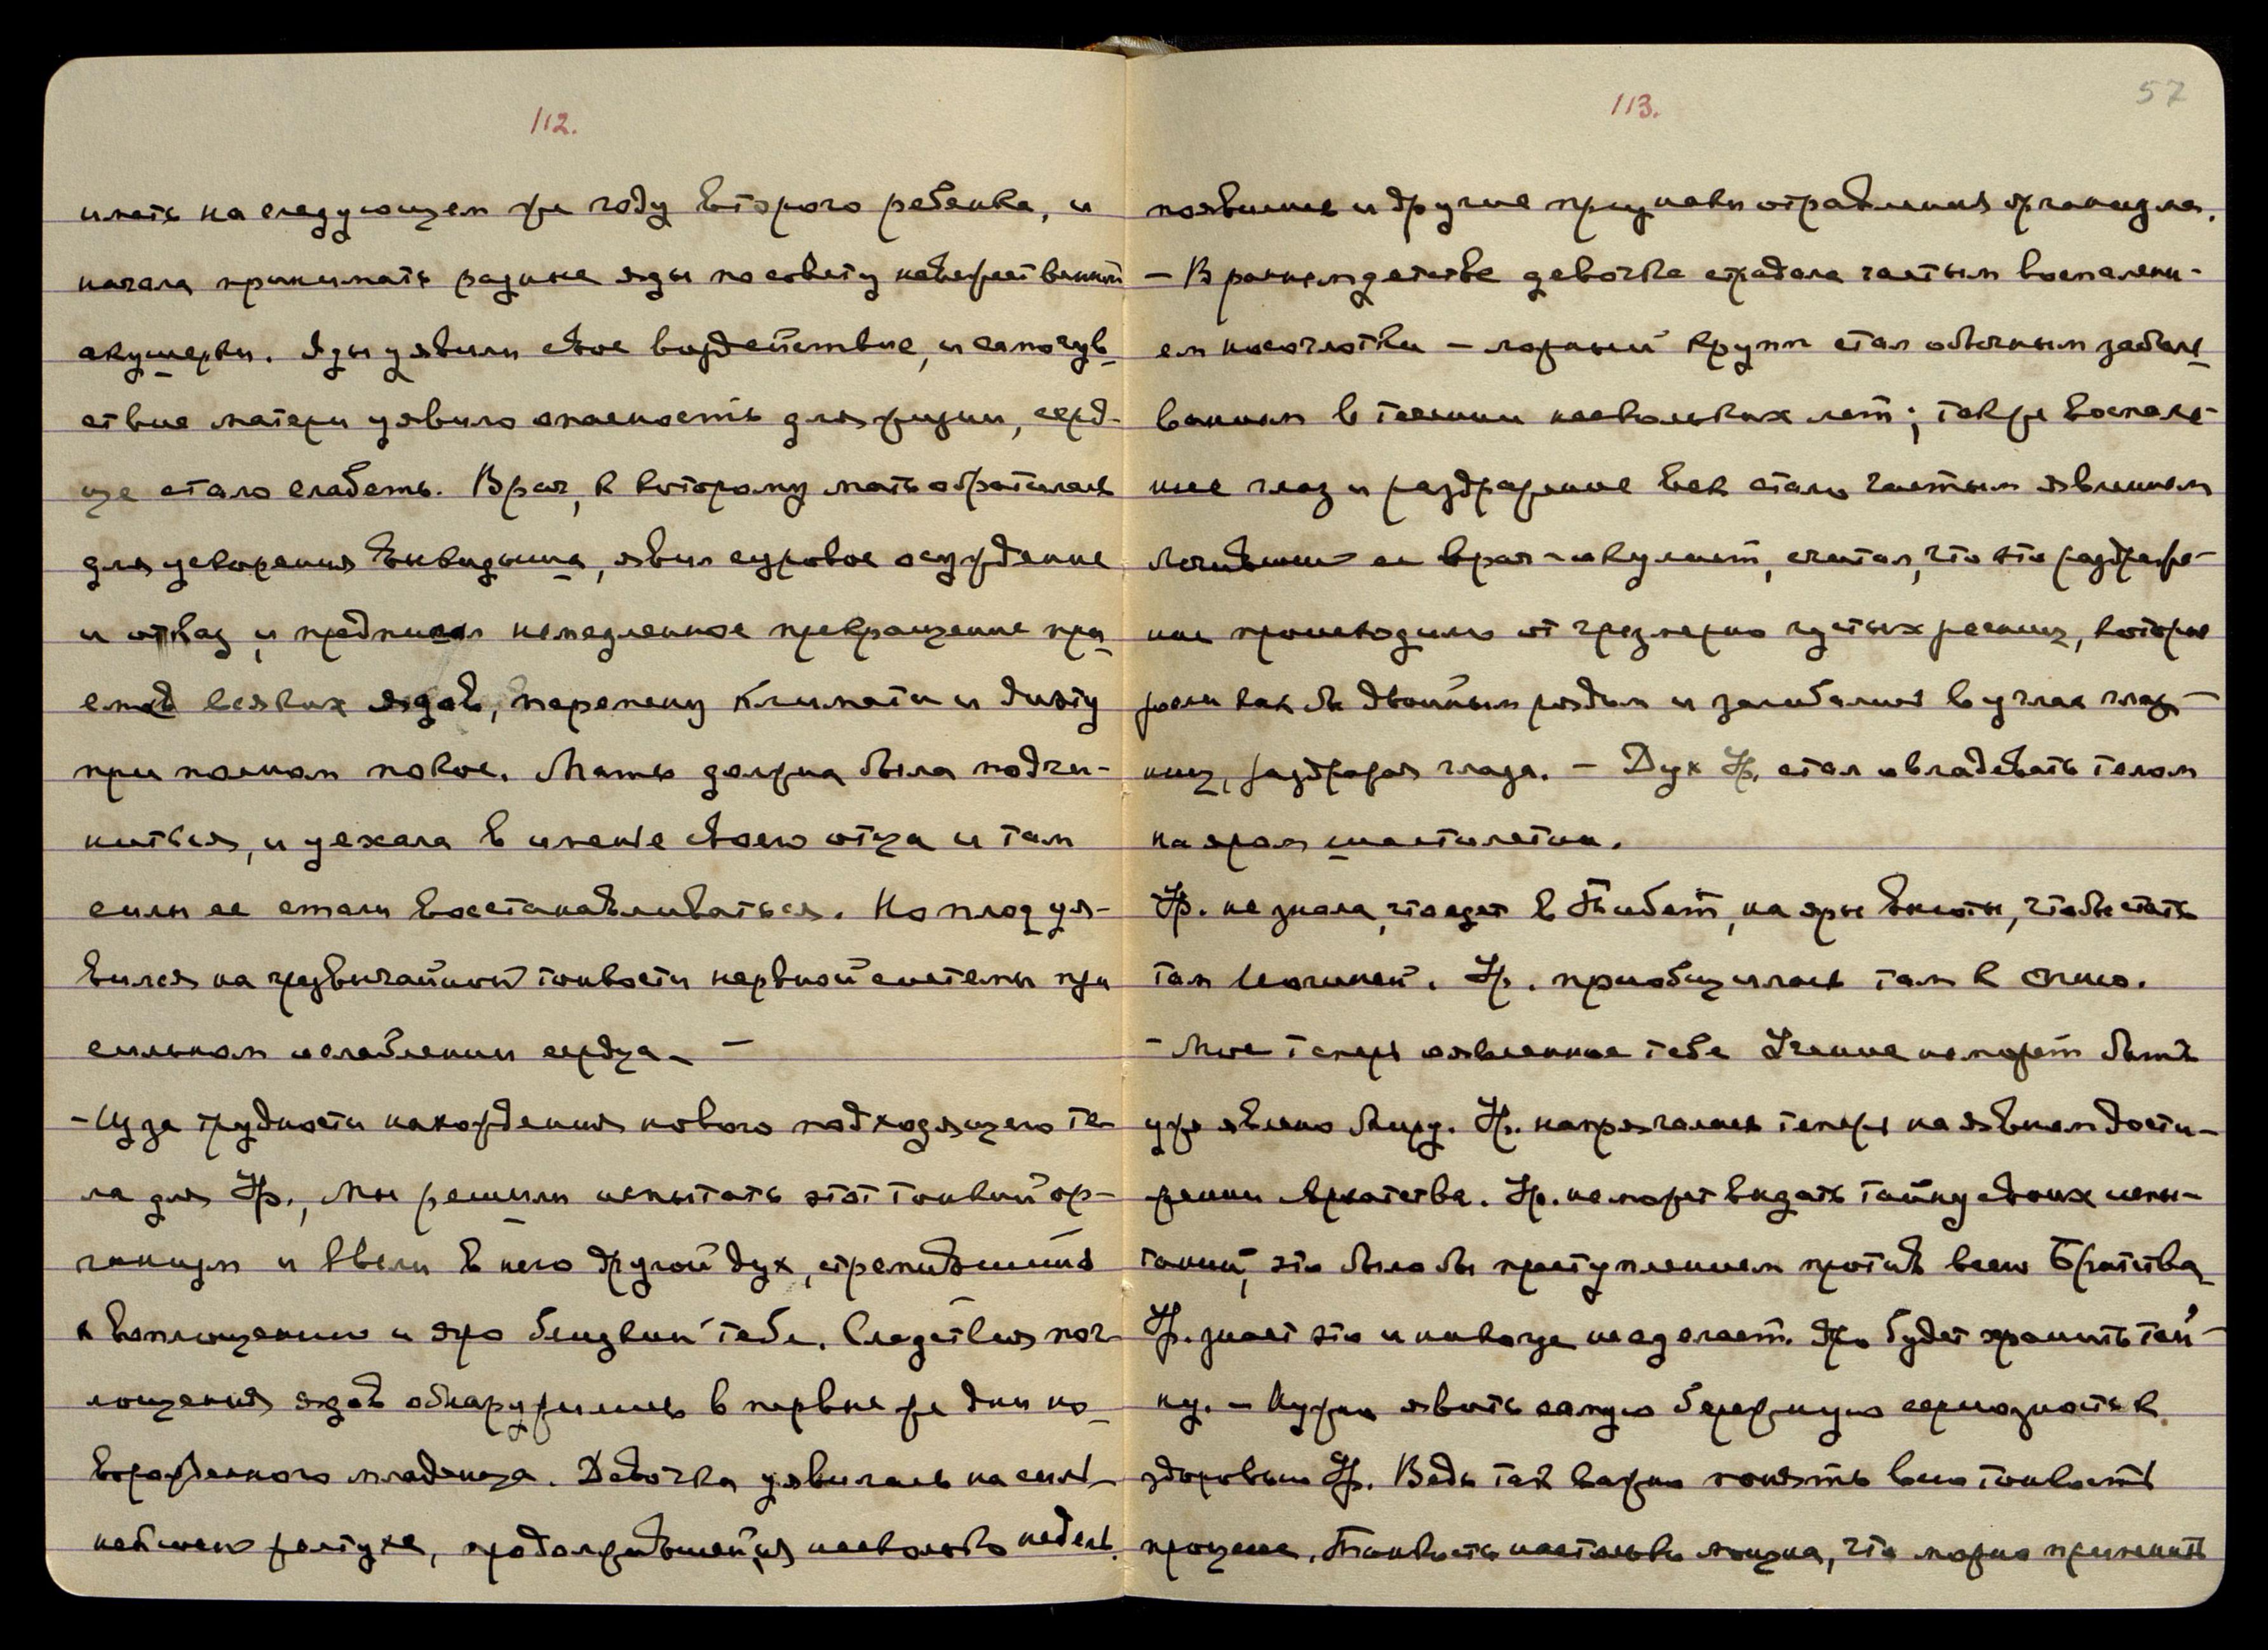 112.
иметь на следующем же году второго ребенка, и
начала принимать разные яды по совету невежественной
акушерки. Яды уявили свое воздействие, и самочув-
ствие матери уявило опасность для жизни, серд-
це стало слабеть. Врач, к которому мать обратилась
для ускорения выкидыша, явил суровое осуждение
и отказ, и предписал немедленное прекращение при-
емов всяких ядов, перемену климата и диэту
при полном покое. Мать должна была подчи-
ниться, и уехала в имение своего отца и там
силы ее стали восстанавливаться. Но плод уя-
вился на чрезвычайной тонкости нервной системы при
сильном ослаблении сердца. –
– Из за трудности нахождения нового подходящего те-
ла для Ур., Мы решили испытать этот тонкий ор-
ганизм и ввели в него другой дух, стремившийся
к воплощению и яро близкий тебе. Следствия пог-
лощения ядов обнаружились в первые же дни но-
ворожденного младенца. Девочка уявилась на силь-
нейшей желтухе, продолжавшейся несколько недель.
113.
57
появились и другие признаки отравления организма.
– В раннем детстве девочка страдала частым воспалени-
ем носоглотки – ложный круп стал обычным заболе-
ванием в течении нескольких лет; также воспале-
ние глаз и раздражение век стали частым явлением
Лечивший ее врач-окулист, считал, что это раздраже-
ние происходило от чрезмерно густых ресниц, которые
росли как бы двойным рядом и загибались в углах глаз-
ниц, раздражая глаза. – Дух Ур. стал овладевать телом
на яром шестилетии.
Ур. не знала, что едет в Тибет, на ярые высоты, чтобы стать
там Иогиней. Ур. приобщилась там к Огню.
– Мое теперь оявленное тебе Учение не может быть
уже явлено Миру. Ур. напрягалась теперь на явном дости-
жении Архатства. Ур. не может выдать тайну своих испы-
таний, это было бы преступлением против всего Братства.
Ур. знает это и никогда не сделает. Яро будет хранить тай-
ну. – Нужно явить самую бережную серьозность к
здоровью Ур. Ведь так важно понять всю тонкость
процесса. Тонкость настолько мощна, что можно применить